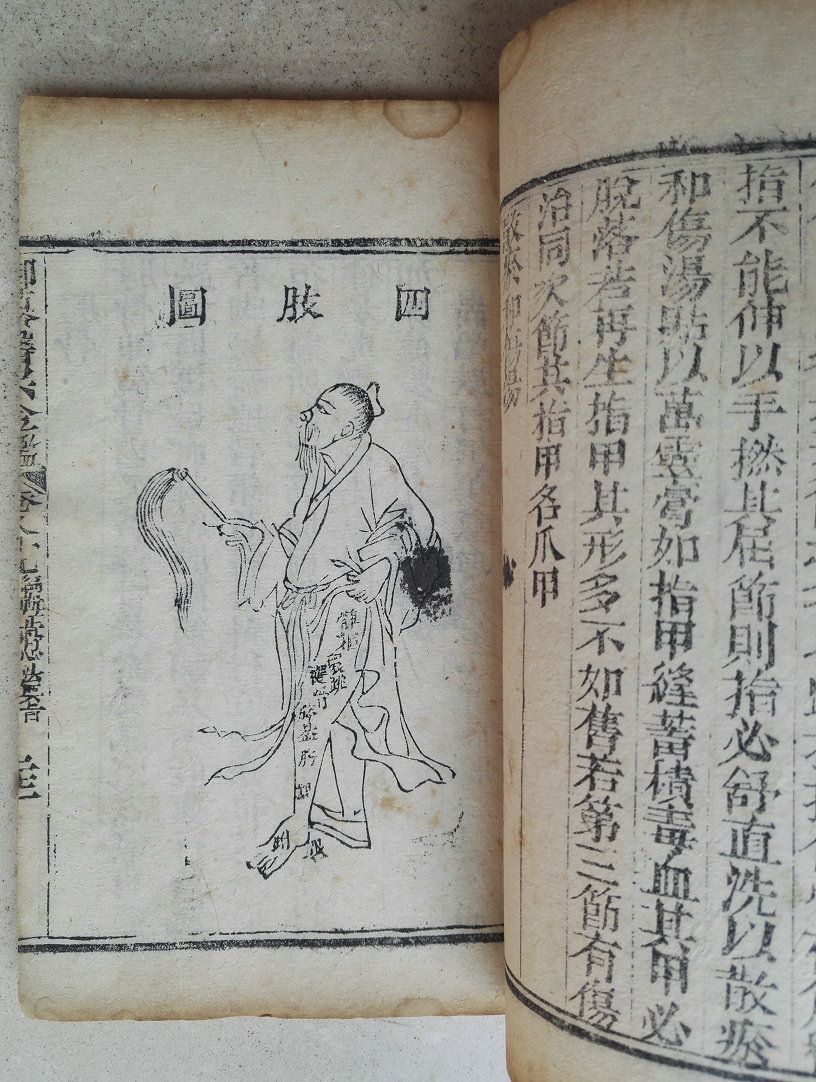 指不能伸以手撚其屈節則指必舒直洗以散瘀
和傷湯貼以萬靈膏如指甲縫蓄積毒血其甲必
脫落若再生指甲其形多不如舊若第三節有傷
治同次節其指甲各爪甲
散瘀和傷湯
四肢圖
環跳
膝蓋
跗
御纂醫宗金鑑
心法要旨